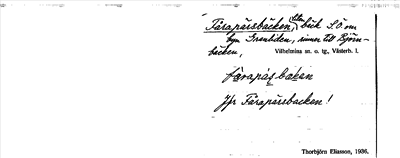 Fårapärsbäcken, liten bäck S.Ö om
byn Granliden, rinner till Björn-
bäcken,
Vilhelmina sn. o. tg, Västerb. l.
fårapäs bäken
Jfr Fårapärsbacken!
Thorbjörn Eliasson, 1936.